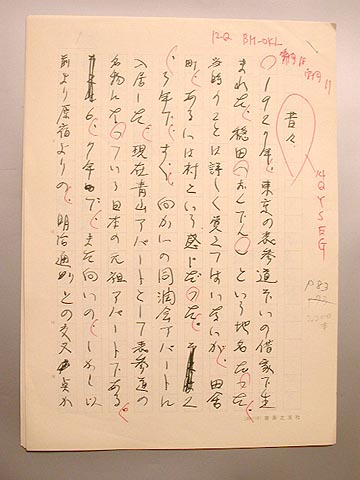 12-Q BM-OKL
昔々
14QYSEG
P83
1927年、東京の表参道ぞいの借家で生
まれた。穏田(おんでん)という地名だった。
当時のことは詳しく覚えてはいないが、田舎
町であるには村という感じだった。
5年 すぐ向かいの同潤会アパートに
入居した。現在青山アパートとして表参道の
名物になっている日本の元祖アパートである。
6、7年 また向いの しかし以
前より原宿よりの、明治通りとの交叉点か
音楽之友社